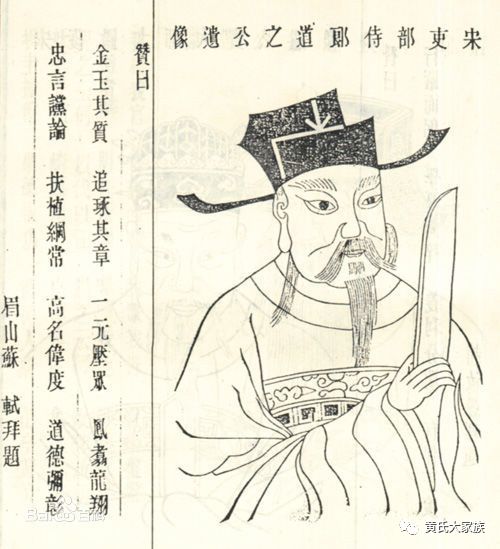 宋吏部侍郎道之公遺像
贊曰
金玉其質 追琢其章 一元壓眾 鳳翥龍翔
忠言讜論 扶植綱常 高名偉度 道德彌彰
眉山蘇 軾拜題
Baidu百科
黄氏大家族